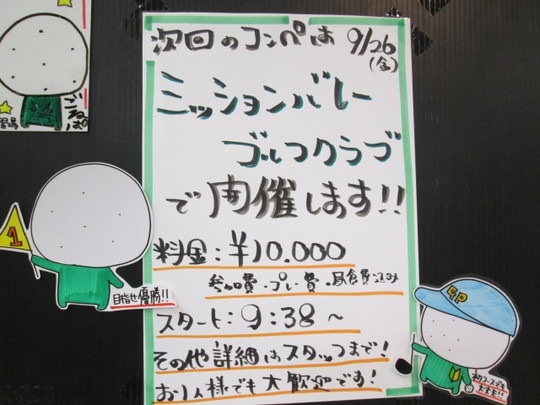 次回のコンペは 9/26
(金)
ミッションバレー
ゴルフクラブ
で開催します!!
料金:¥10.000
参加費・プレー費・昼食費込み
スタート:9:38～
その他詳細はスタッフまで!
お1人様でも大歓迎です!
ごるぱ
1
目指せ優勝!!
GP